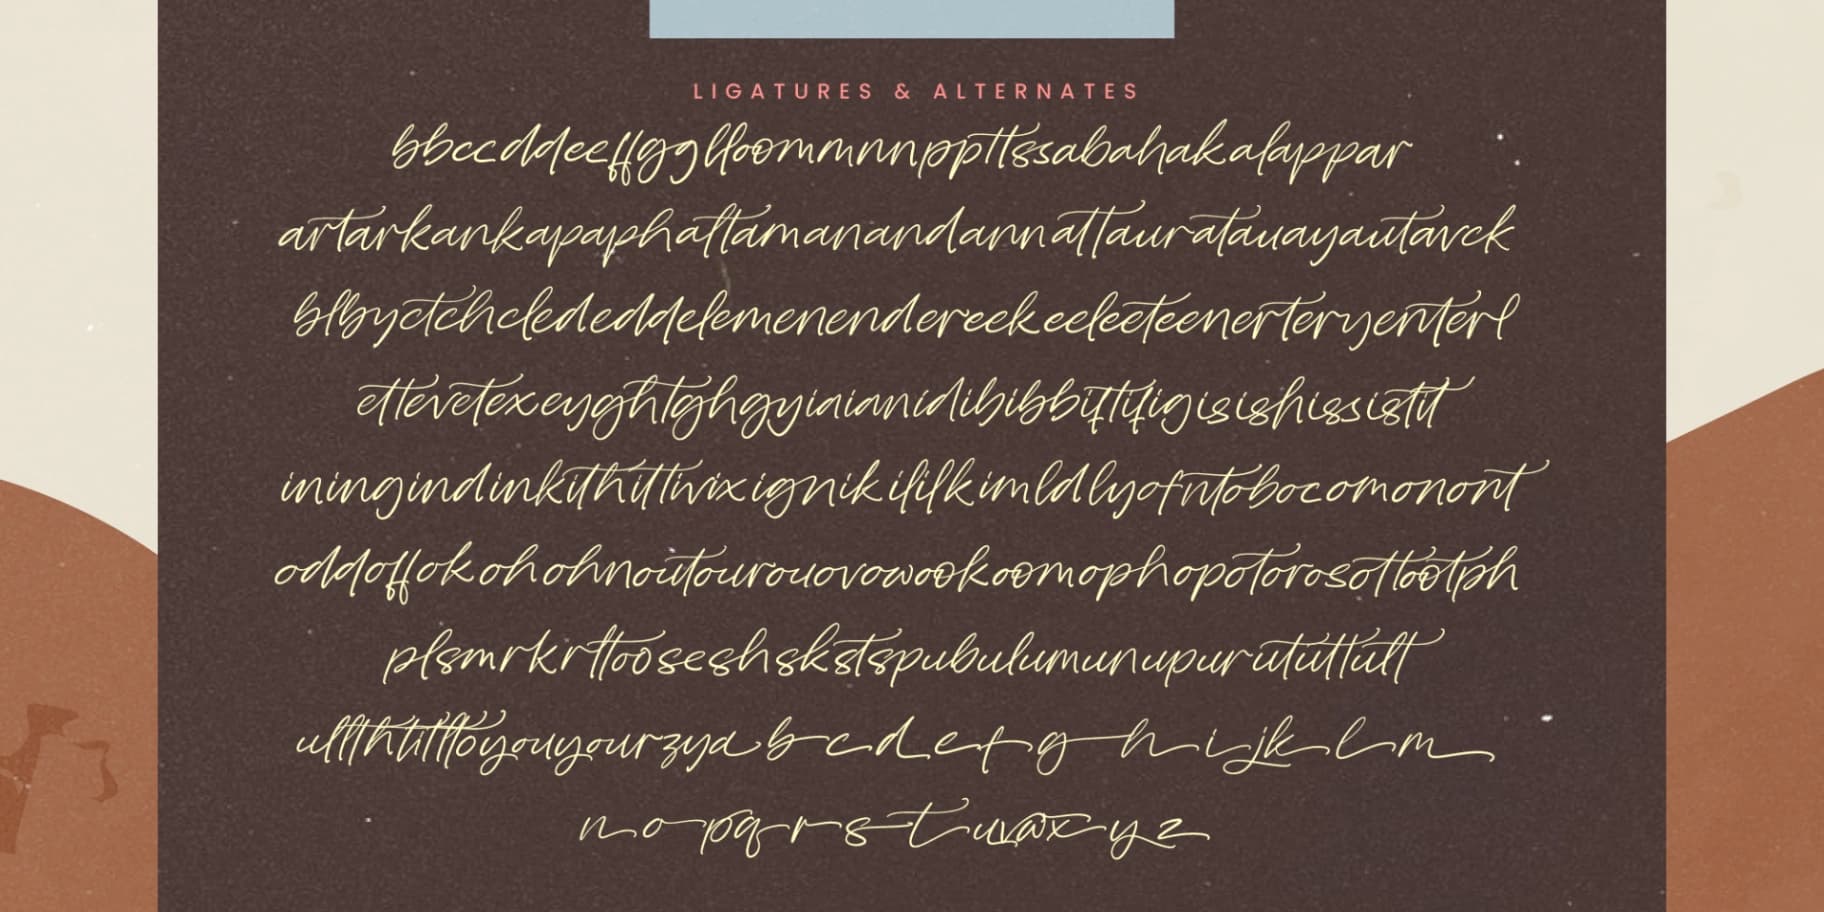 LIGATURES & ALTERNATES
bbccddeeffgglloommnnppttssabahakalappar
artarkankapaphaltamanandannattauratauayautavck
blbyctchclededdelemenendereekeeleeteenerteryenterl
ettevetexeyghtghgyiaianidibibbiftifigisishississtit
iningindinkithittivixignikililkimldlyofntobocomonont
oddoffokohohnoutourouovowookoomophopotorosottootph
plsmrkrttooseshskstspubulumunupurututtult
ulltthtitlltoyouyourzyabcdefghijklm
nopqrstuvwxyz